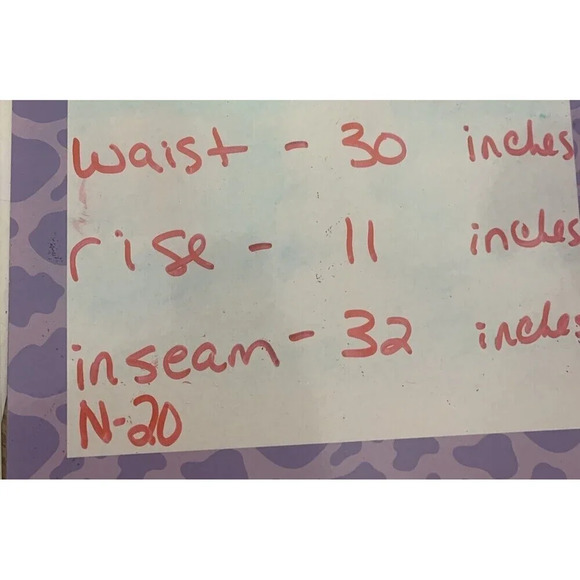 waist - 30 inches
rise - 11 inches
inseam - 32 inches
N-20